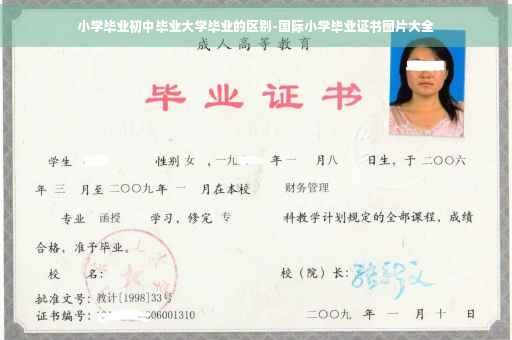 小学毕业初中毕业大学毕业的区别-国际小学毕业证书图片大全
成人高等教育
毕业证书
学生 性别 女 ,一九 年 一 月八 日生，于二〇〇六
年 三 月至二〇〇九年 一 月在本校 财务管理
专业 函授 学习，修完 专 科教学计划规定的全部课程，成绩
合格，准予毕业。
校 名： 校（院）长：
批准文号：教计[1998]33号
证书编号： 06001310 二〇〇九 年 一 月 十 日